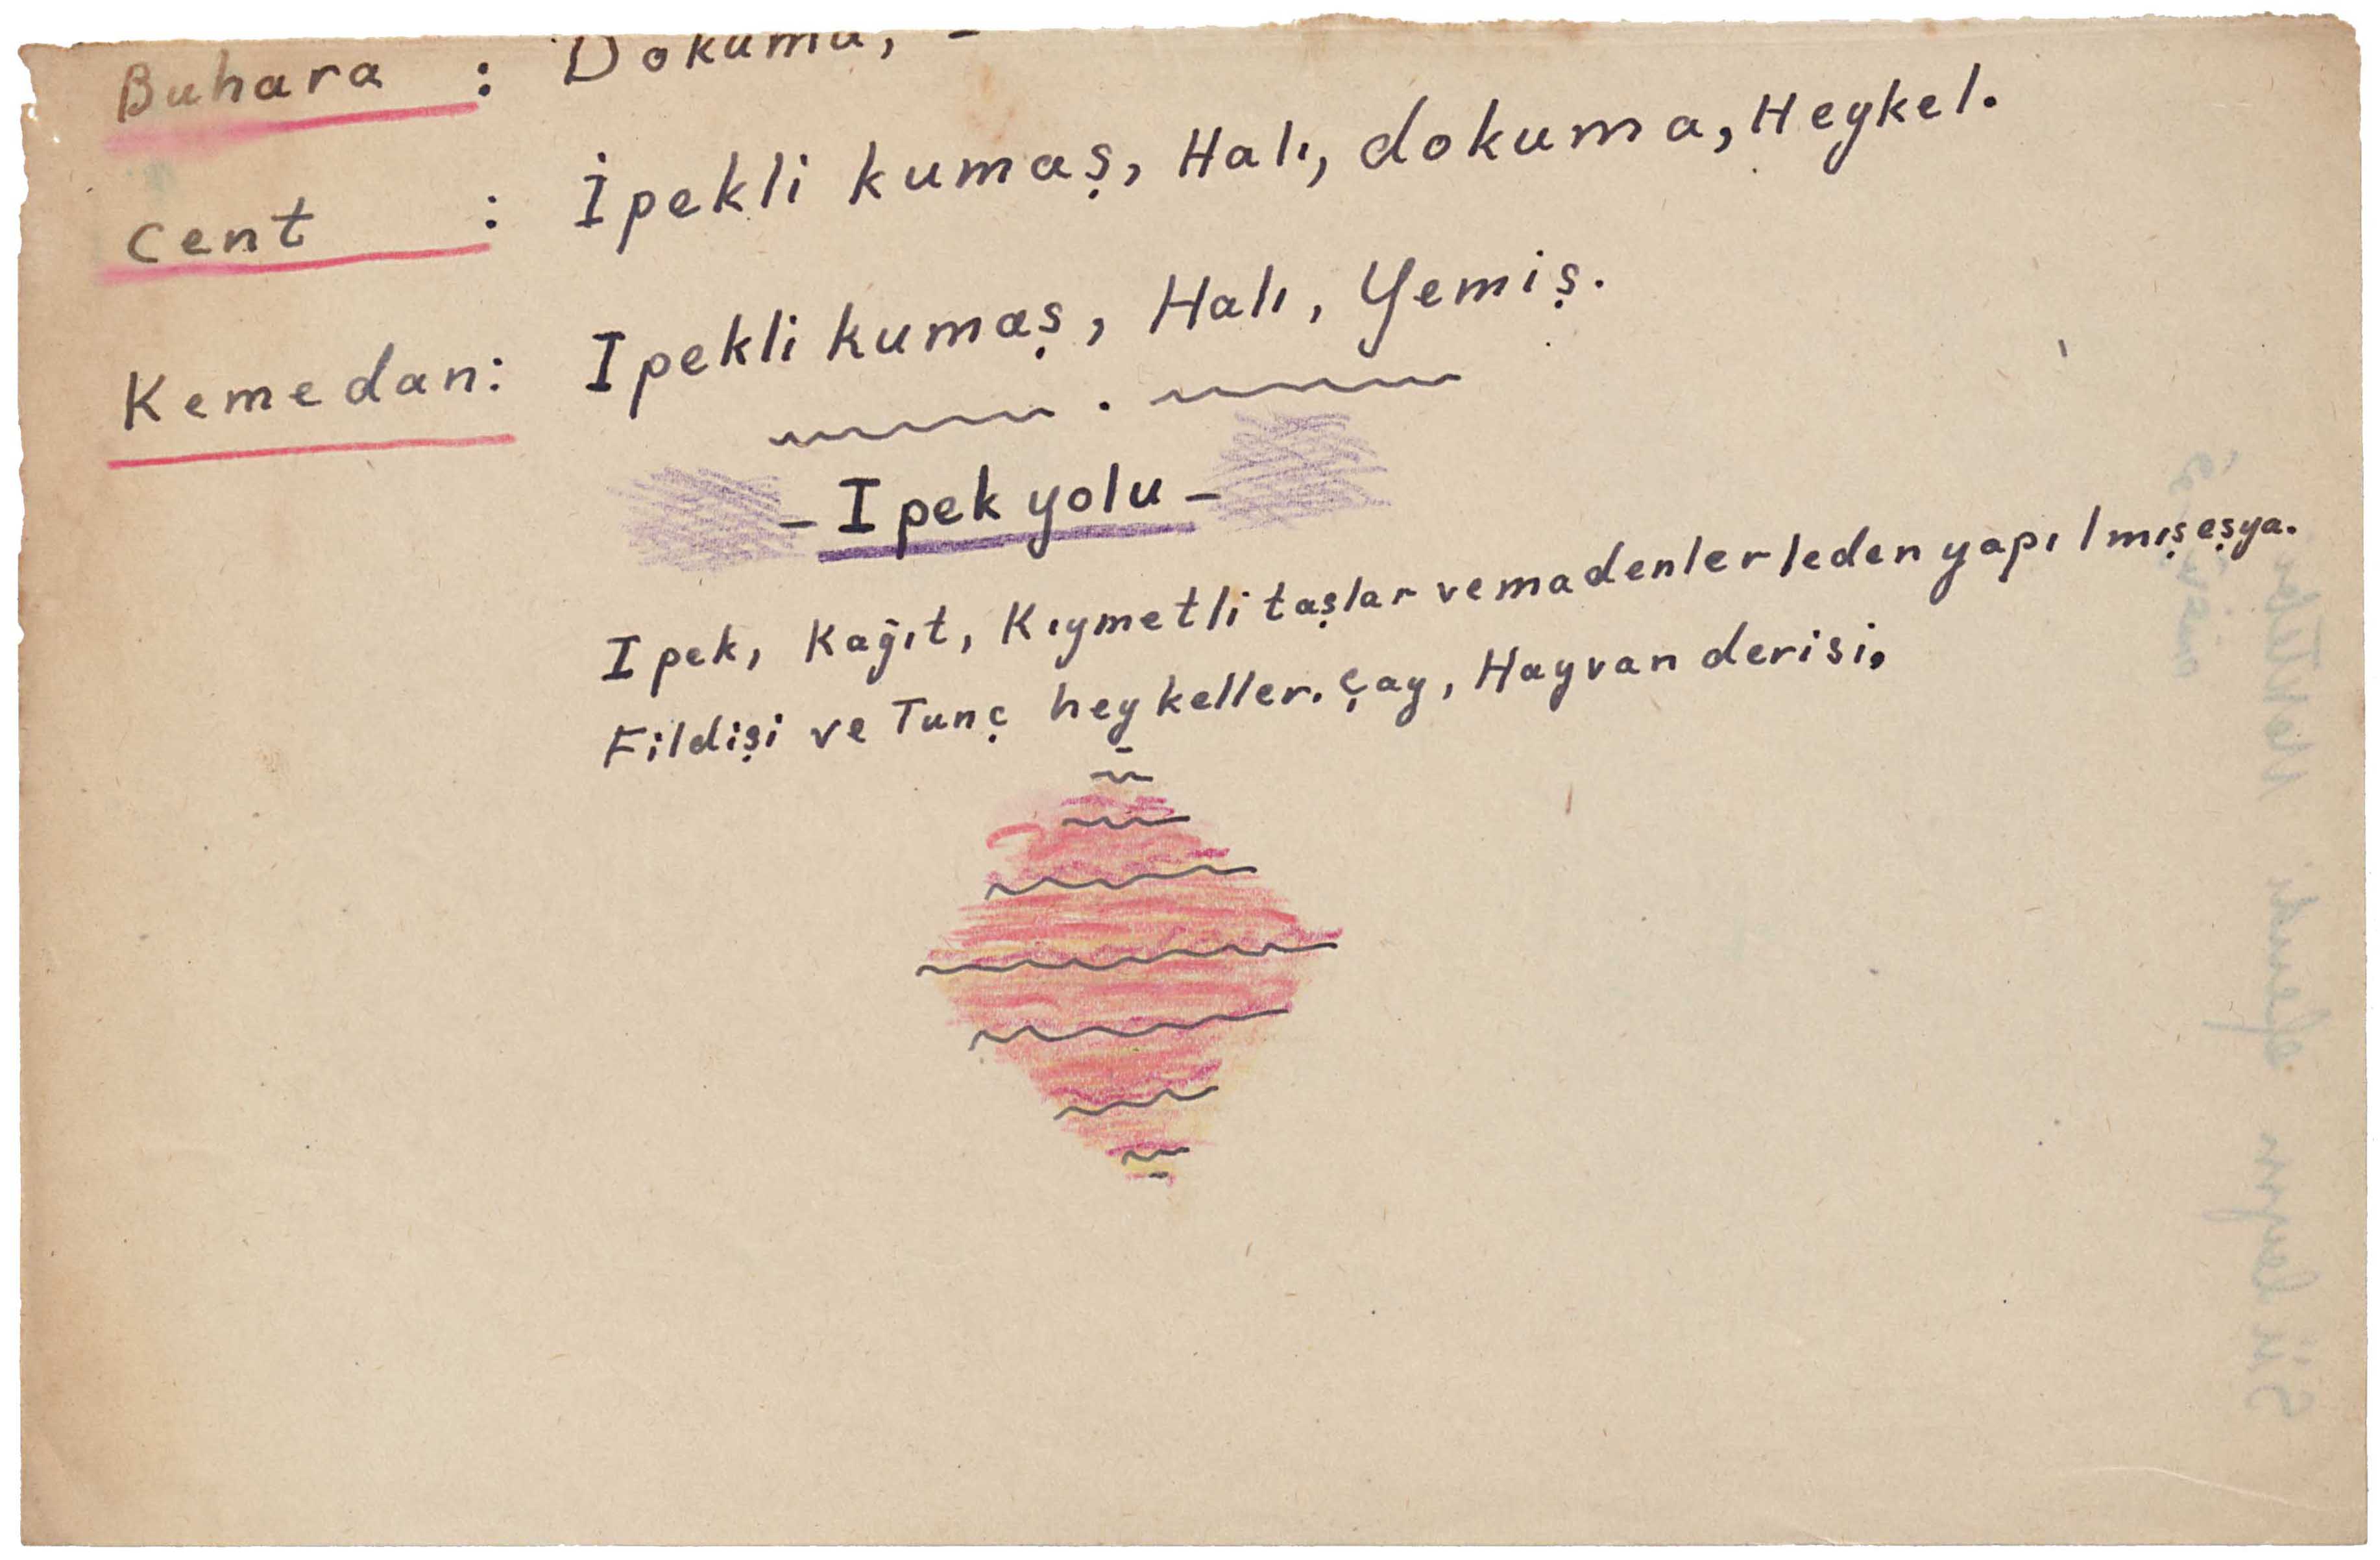 Buhara : Dokuma,
Cent : İpekli kumaş, Halı, dokuma, Heykel.
Kemedan: Ipekli kumaş, Halı, Yemiş.
- Ipek yolu -
Ipek, Kağıt, Kıymetli taşlar ve madenlerleden yapılmış eşya.
Fildişi ve Tunç heykeller. Çay, Hayvan derisi,